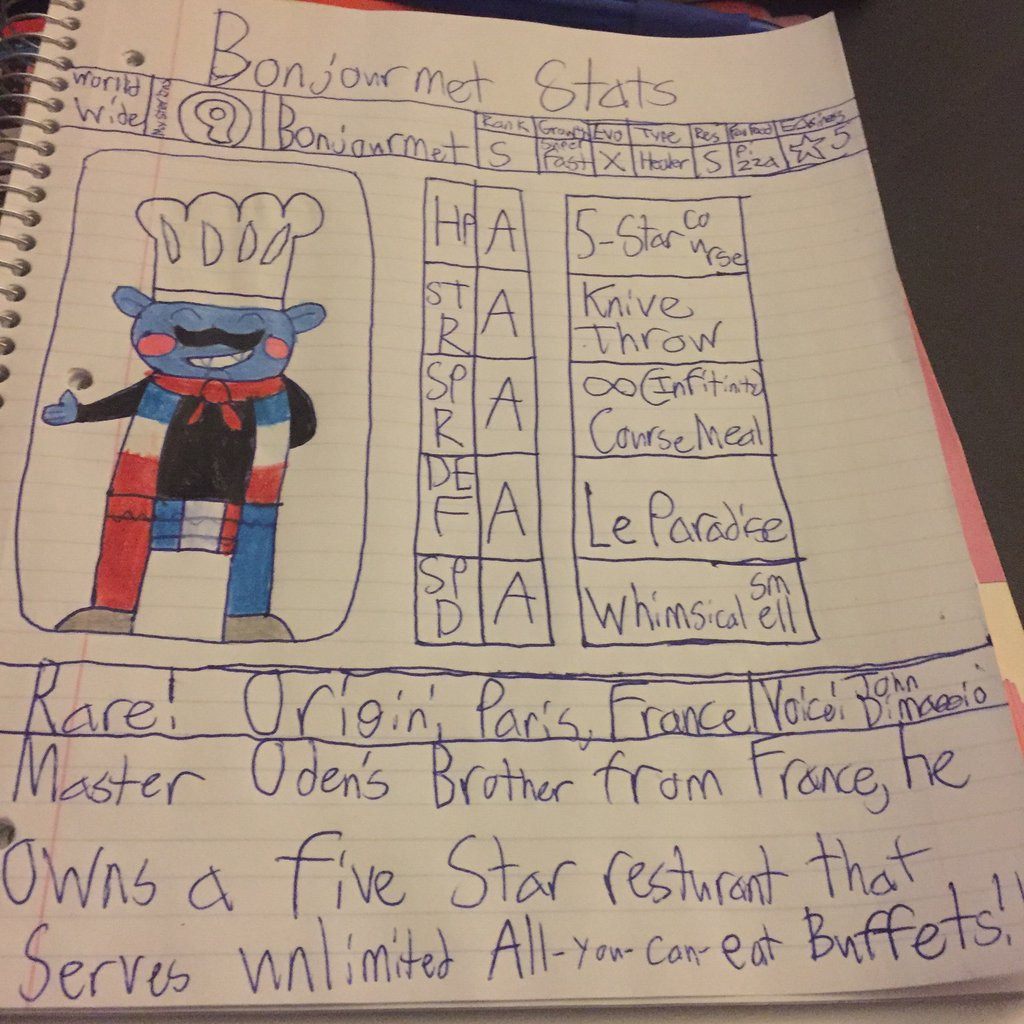 Bonjourmet Stats
World
Wide
Bonjourmet
Rank Growth Evo Type Res Fav Food
S Super Fast X Healer S Pizza ☆5
HP A 5-Star Course
STR A Knive Throw
SPR A ∞(Infitinite) Course Meal
DEF A Le Paradise
SPD A Whimsical smell
Rare! Origin: Paris, France Voice: John Dimaggio
Master Oden's Brother from France, he
Owns a five Star resturant that
Serves unlimited All-you-can-eat Buffets!!